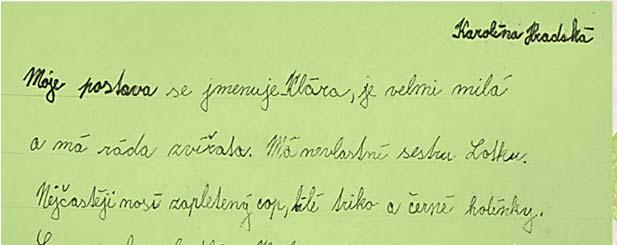 Karolína Hradská
Móje postava se jmenuje Klára, je velmi milá
a má ráda zvířata. Má nevlastní sestru Lotku.
Nejčastěji nosí zapletený cop, bílé triko a černé holínky.